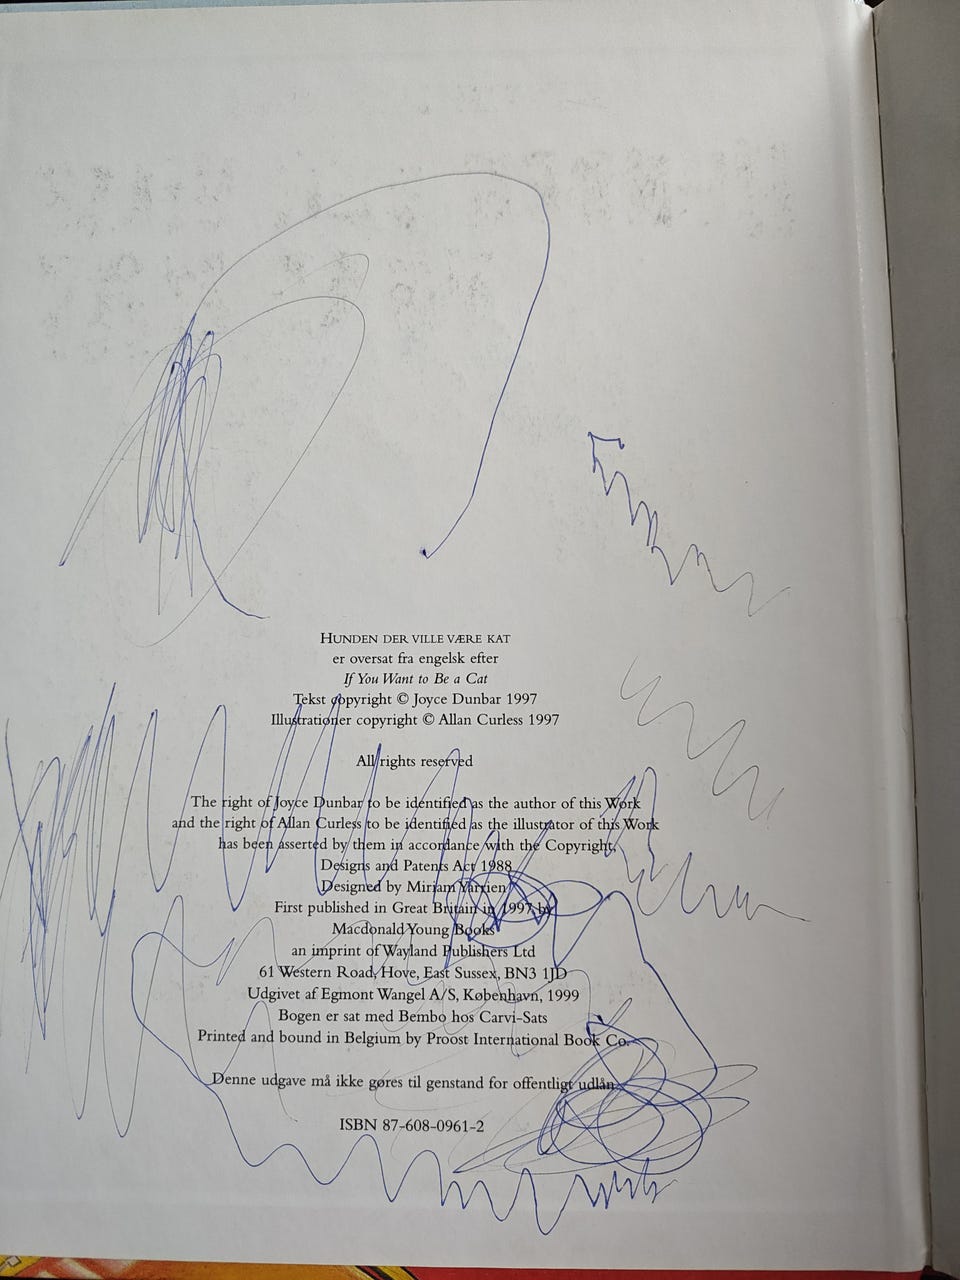 HUNDEN DER VILLE VÆRE KAT
er oversat fra engelsk efter
If You Want to Be a Cat
Tekst copyright © Joyce Dunbar 1997
Illustrationer copyright © Allan Curless 1997
All rights reserved
The right of Joyce Dunbar to be identified as the author of this Work
and the right of Allan Curless to be identified as the illustrator of this Work
has been asserted by them in accordance with the Copyright,
Designs and Patents Act 1988
Designed by Miriam
First published in Great Britain in 1997 by
Macdonald Young Books
an imprint of Wayland Publishers Ltd
61 Western Road, Hove, East Sussex, BN3 1JD
Udgivet af Egmont Wangel A/S, København, 1999
Bogen er sat med Bembo hos Carvi-Sats
Printed and bound in Belgium by Proost International Book Co.
Denne udgave må ikke gøres til genstand for offentligt udlån
ISBN 87-608-0961-2